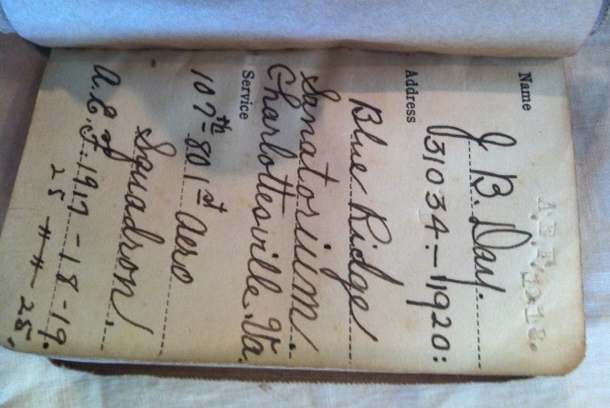 A.E.F. 1918.
Name J. B. Day.
31034 – 1920:
Address Blue Ridge
Sanatorium.
Charlottesville. Va.
Service
107th – 801st Aero
Squadron.
A.E.F. 1917 – 18 – 19.
25 " " – 25.